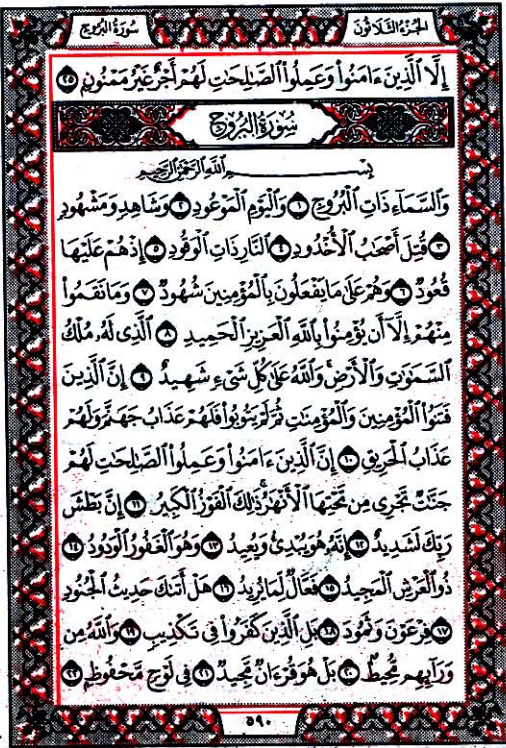 الجُزءُ الثَّلَاثُونَ سُورَةُ البُرُوج
إِلَّا الَّذِينَ ءَامَنُوا۟ وَعَمِلُوا۟ الصَّالِحَاتِ لَهُمْ أَجْرٌ غَيْرُ مَمْنُونٍ ٢٥
سُورَةُ البُرُوجِ
بِسْمِ اللَّهِ الرَّحْمَٰنِ الرَّحِيمِ
وَالسَّمَآءِ ذَاتِ الْبُرُوجِ ١ وَالْيَوْمِ الْمَوْعُودِ ٢ وَشَاهِدٍ وَمَشْهُودٍ
٣ قُتِلَ أَصْحَٰبُ الْأُخْدُودِ ٤ النَّارِ ذَاتِ الْوَقُودِ ٥ إِذْ هُمْ عَلَيْهَا
قُعُودٌ ٦ وَهُمْ عَلَىٰ مَا يَفْعَلُونَ بِالْمُؤْمِنِينَ شُهُودٌ ٧ وَمَا نَقَمُوا۟
مِنْهُمْ إِلَّآ أَن يُؤْمِنُوا۟ بِاللَّهِ الْعَزِيزِ الْحَمِيدِ ٨ الَّذِى لَهُۥ مُلْكُ
السَّمَٰوَٰتِ وَالْأَرْضِ وَاللَّهُ عَلَىٰ كُلِّ شَىْءٍ شَهِيدٌ ٩ إِنَّ الَّذِينَ
فَتَنُوا۟ الْمُؤْمِنِينَ وَالْمُؤْمِنَٰتِ ثُمَّ لَمْ يَتُوبُوا۟ فَلَهُمْ عَذَابُ جَهَنَّمَ وَلَهُمْ
عَذَابُ الْحَرِيقِ ١٠ إِنَّ الَّذِينَ ءَامَنُوا۟ وَعَمِلُوا۟ الصَّالِحَاتِ لَهُمْ
جَنَّٰتٌ تَجْرِى مِن تَحْتِهَا الْأَنْهَٰرُ ذَٰلِكَ الْفَوْزُ الْكَبِيرُ ١١ إِنَّ بَطْشَ
رَبِّكَ لَشَدِيدٌ ١٢ إِنَّهُۥ هُوَ يُبْدِئُ وَيُعِيدُ ١٣ وَهُوَ الْغَفُورُ الْوَدُودُ ١٤
ذُو الْعَرْشِ الْمَجِيدُ ١٥ فَعَّالٌ لِّمَا يُرِيدُ ١٦ هَلْ أَتَىٰكَ حَدِيثُ الْجُنُودِ
١٧ فِرْعَوْنَ وَثَمُودَ ١٨ بَلِ الَّذِينَ كَفَرُوا۟ فِى تَكْذِيبٍ ١٩ وَاللَّهُ مِن
وَرَآئِهِم مُّحِيطٌ ٢٠ بَلْ هُوَ قُرْءَانٌ مَّجِيدٌ ٢١ فِى لَوْحٍ مَّحْفُوظٍ ٢٢
٥٩٠